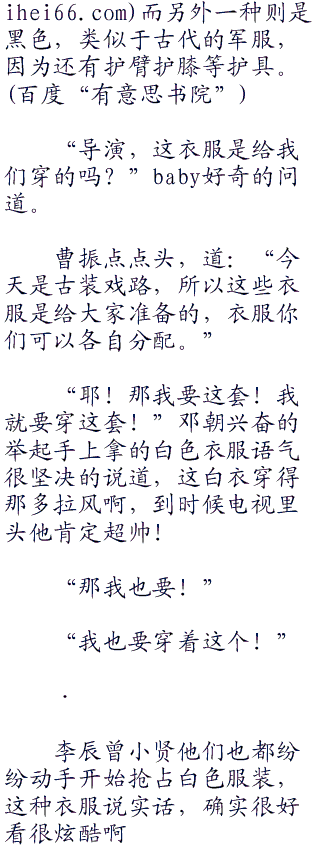 ihei66.com)而另外一种则是
黑色，类似于古代的军服，
因为还有护臂护膝等护具。
(百度“有意思书院”)
“导演，这衣服是给我
们穿的吗？”baby好奇的问
道。
曹振点点头，道：“今
天是古装戏路，所以这些衣
服是给大家准备的，衣服你
们可以各自分配。”
“耶！那我要这套！我
就要穿这套！”邓朝兴奋的
举起手上拿的白色衣服语气
很坚决的说道，这白衣穿得
那多拉风啊，到时候电视里
头他肯定超帅！
“那我也要！”
“我也要穿着这个！”
.
李辰曾小贤他们也都纷
纷动手开始抢占白色服装，
这种衣服说实话，确实很好
看很炫酷啊